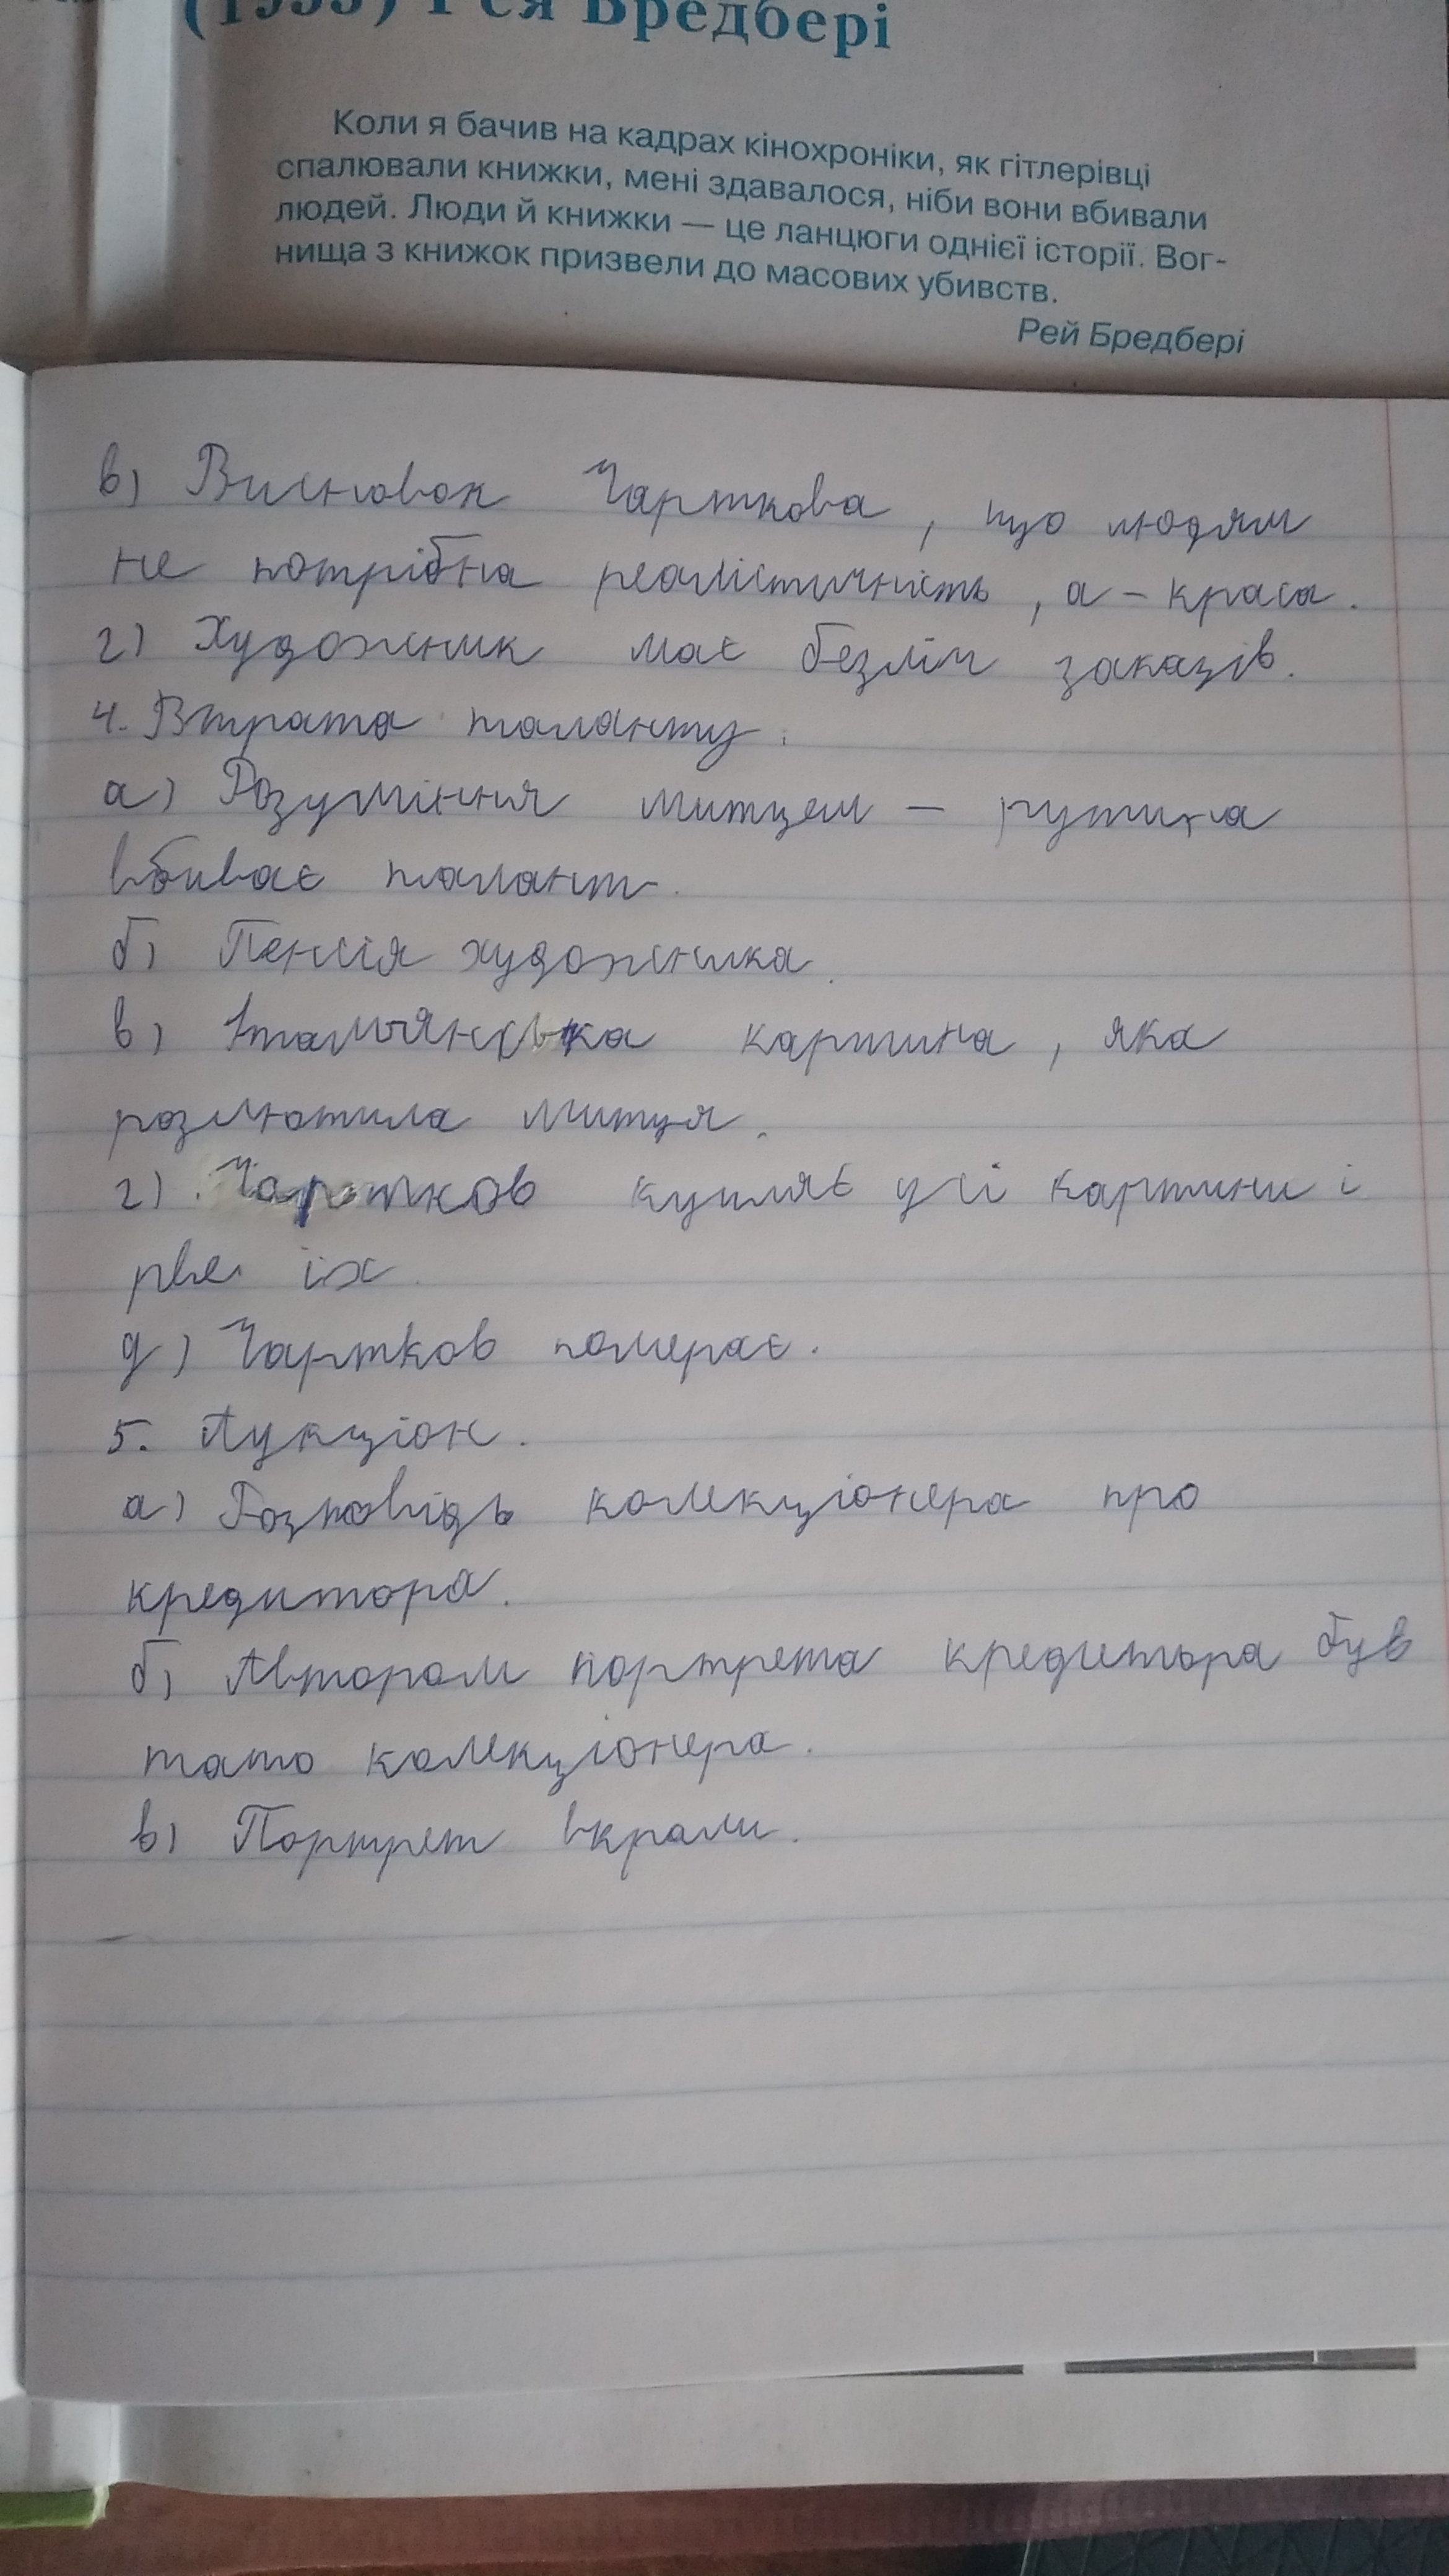 (1953) Рея Бредбері
Коли я бачив на кадрах кінохроніки, як гітлерівці
спалювали книжки, мені здавалося, ніби вони вбивали
людей. Люди й книжки — це ланцюги однієї історії. Вог-
нища з книжок призвели до масових убивств.
Рей Бредбері
в) Висновок Чарткова, що людям
не потрібна реалістичність, а - краса.
г) Художник має безліч заказів.
4. Втрата таланту.
а) Розуміння митцем - рутина
вбиває талант.
б) Пенсія художника.
в) Італьянська картина, яка
розлютила митця.
г) Чартков купляє усі картини і
рве їх.
д) Чартков помирає.
5. Аукціон.
а) Розповідь колекціонера про
кредитора.
б) Автором портрета кредитора був
тато колекціонера.
в) Портрет вкрали.